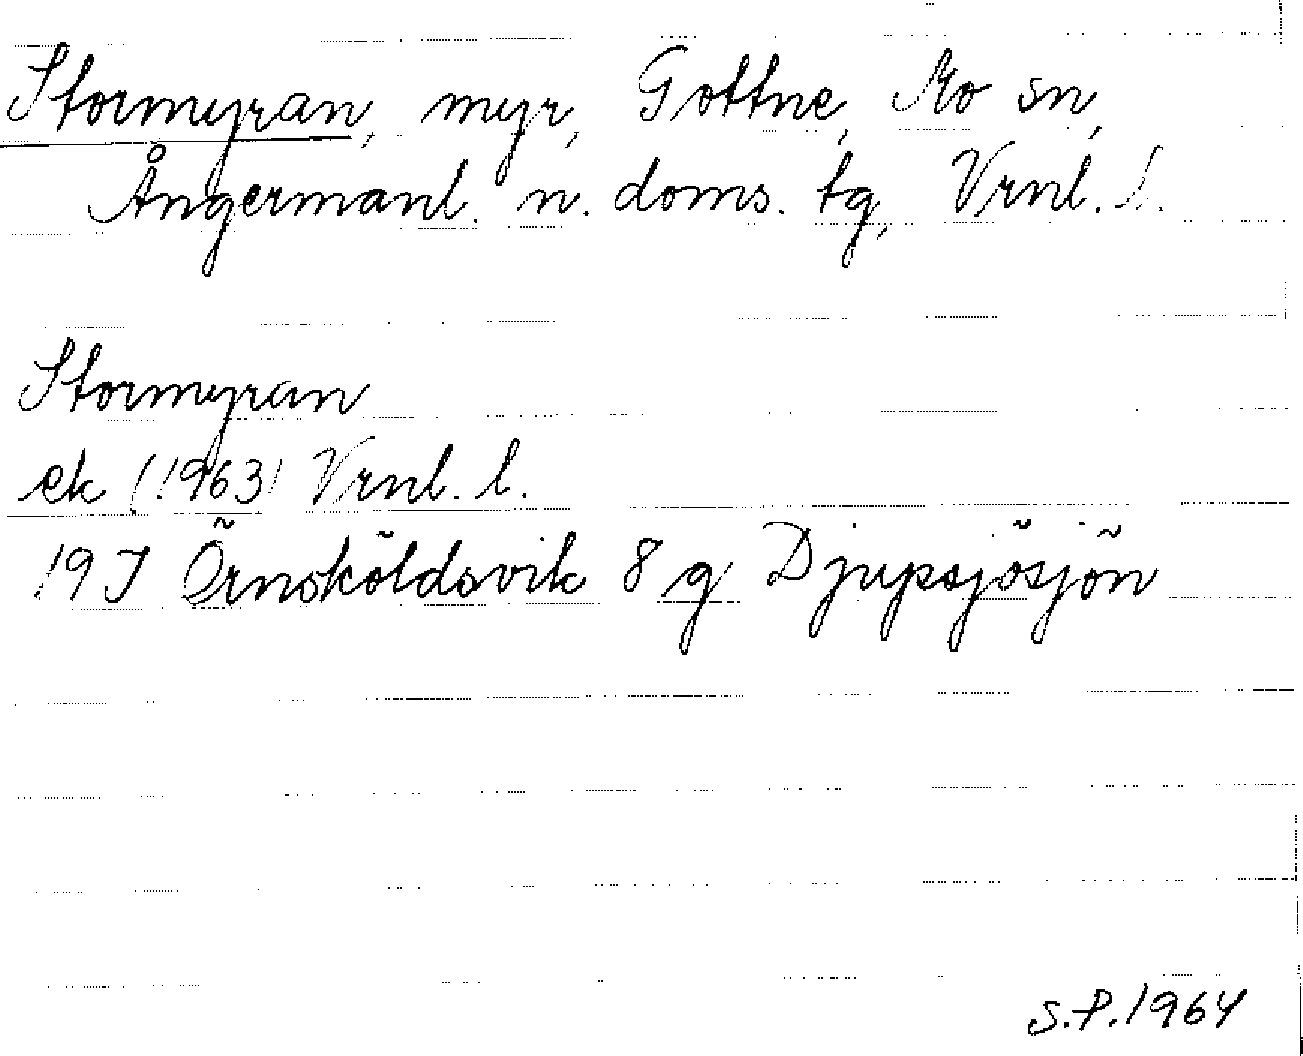 Stormyran, myr, Gottne, Mo sn,
Ångermanl. n. doms. tg, Vrnl. l.
Stormyran
ek (1963) Vrnl. l.
19 J Örnsköldsvik 8 g Djupsjösjön
S.P. 1964